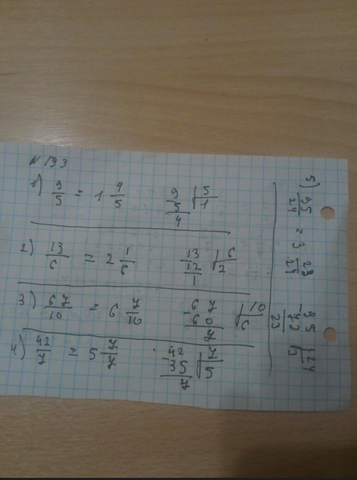 N 193
1) 9/5 = 1 4/5
9 | 5
5 | 1
4
2) 13/6 = 2 1/6
13 | 6
12 | 2
1
3) 67/10 = 6 7/10
-67 | 10
60 | 6
7
4) 42/7 = 5 7/7
-42 | 7
35 | 5
7
5) 95/24 = 3 23/24
-95 | 24
72 | 3
23